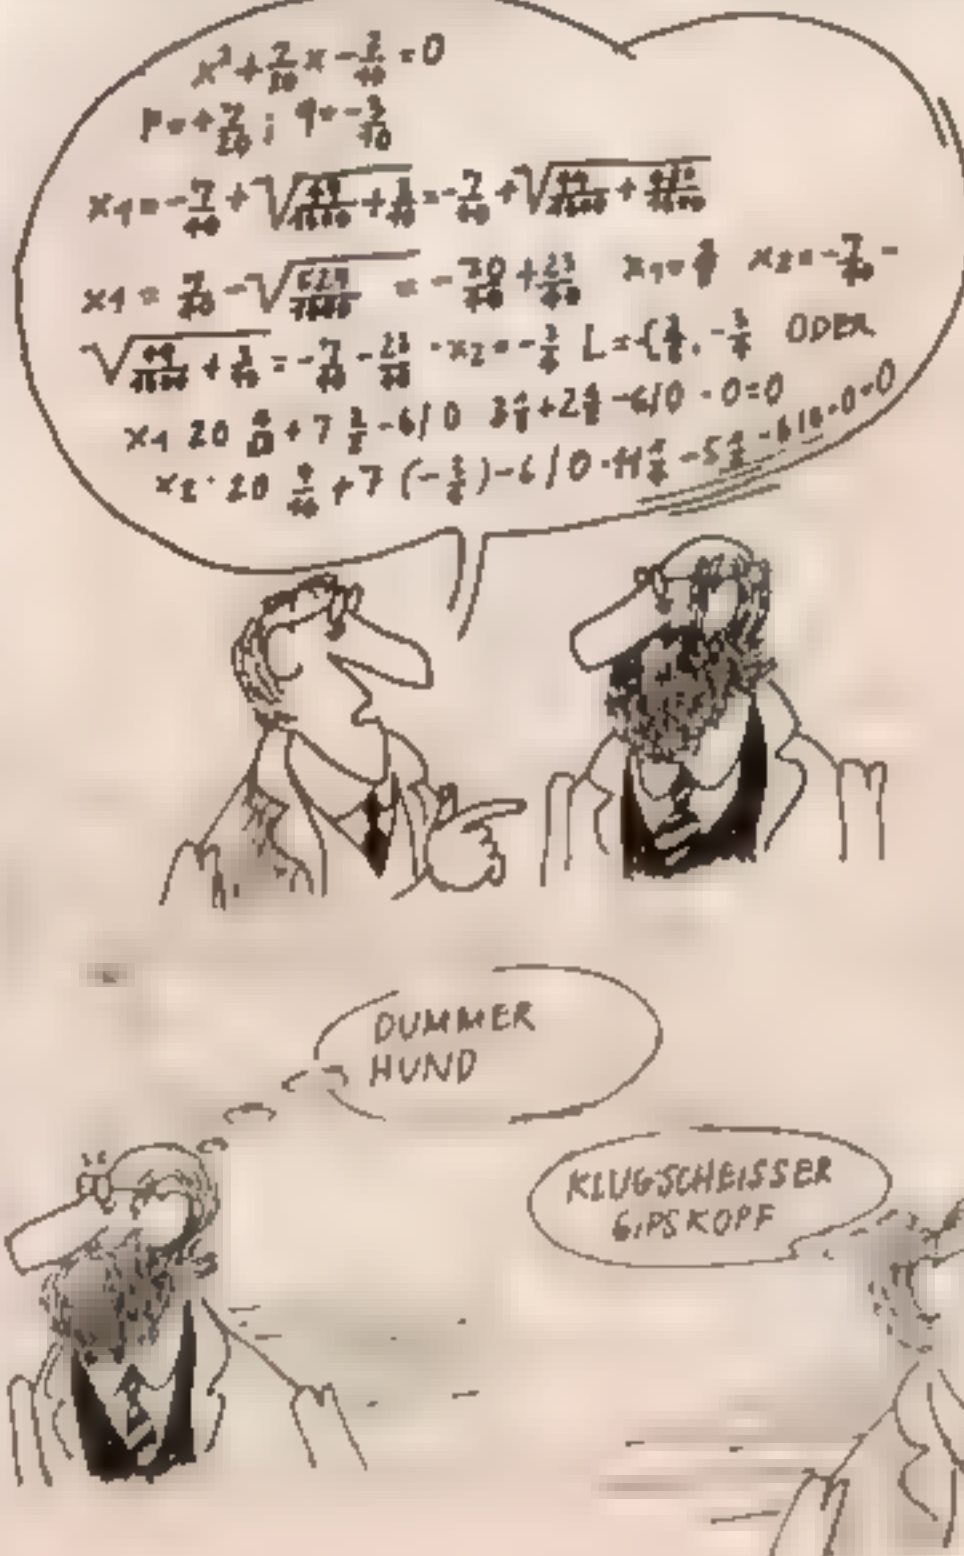 x² + 7/20 x - 3/10 = 0
p = + 7/20 ; q = - 3/10
x1 = - 7/40 + √(49/1600 + 3/10) = - 7/40 + √(49/1600 + 480/1600)
x1 = 7/40 - √(529/1600) = - 70/40 + 23/40 x1 = x2 = - 7/40 -
√(49/1600 + 3/10) = - 7/40 - 23/40 · x2 = - 3/4 L = { , - 3/4 ODER
x1 20 + 7 - 6/0 + 2 - 6/0 - 0 = 0
x2 · 20 + 7 (- 3/4) - 6/0 · 11 - 5 - 6/0 · 0 = 0
DUMMER
HUND
KLUGSCHEISSER
GIPSKOPF